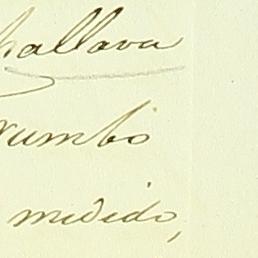 hallava
rumbo
medido,